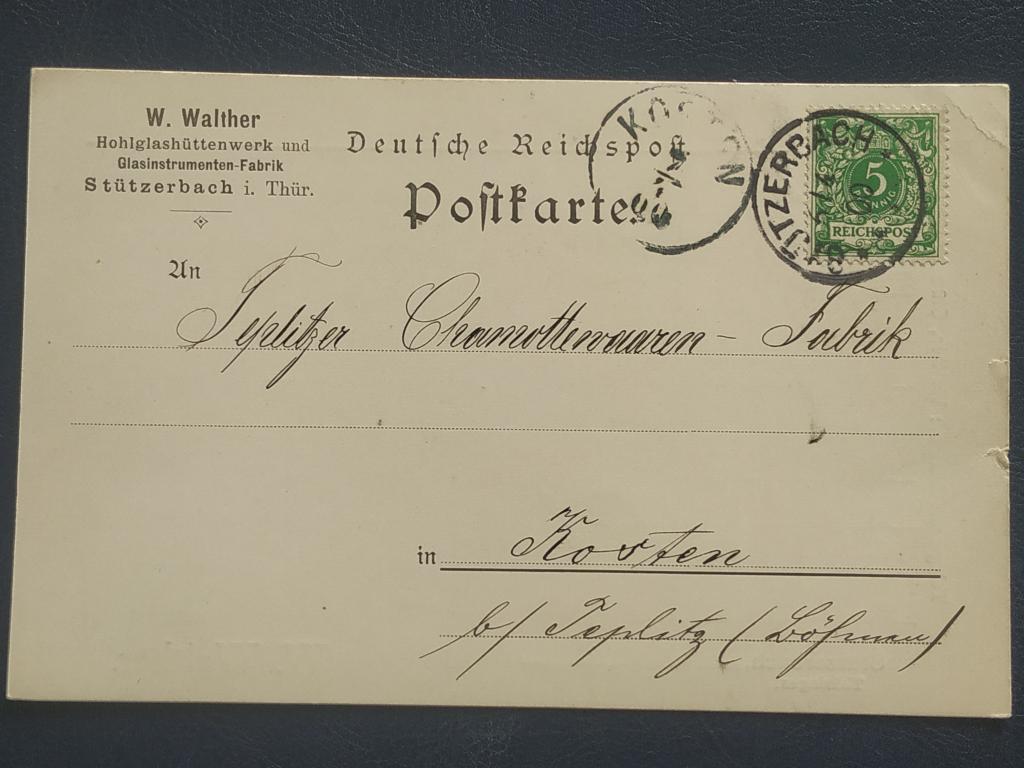 W. Walther
Hohlglashüttenwerk und
Glasinstrumenten-Fabrik
Stützerbach i. Thür.
Deutsche Reichspost.
Postkarte
An
Teplitzer Chamottewaaren - Fabrik
in Kosten
b/ Teplitz (Böhmen)
5
REICHSPOST